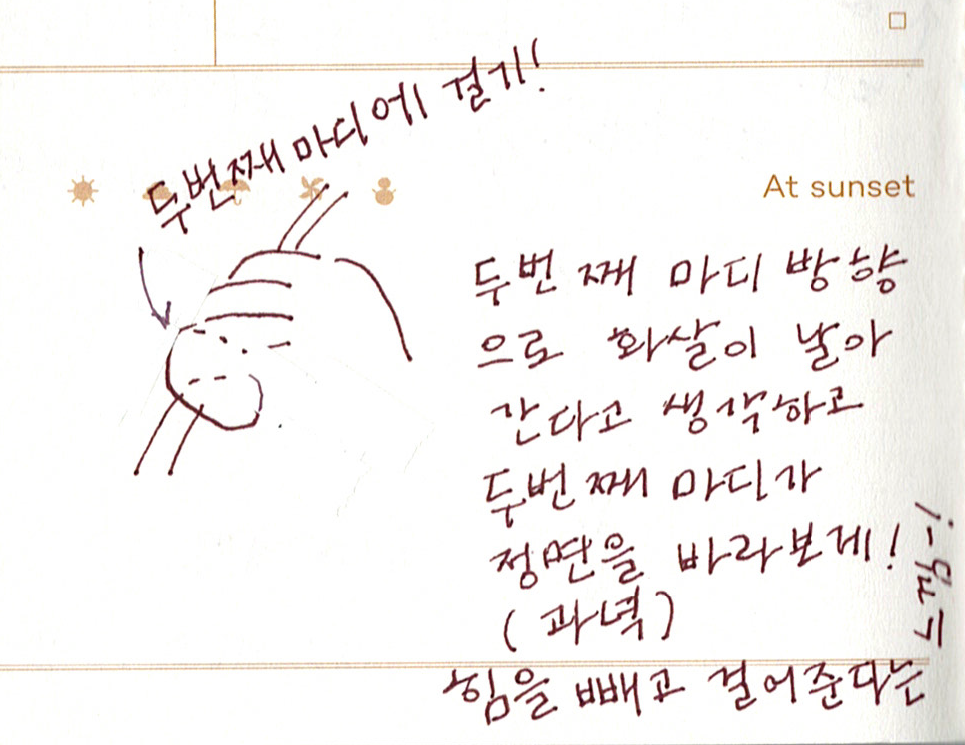 두번째 마디에 걸기!
At sunset
두번 째 마디 방향
으로 화살이 날아
간다고 생각하고
두번째 마디가
정면을 바라보게!
(과녁)
힘을 빼고 걸어준다는
느낌~!